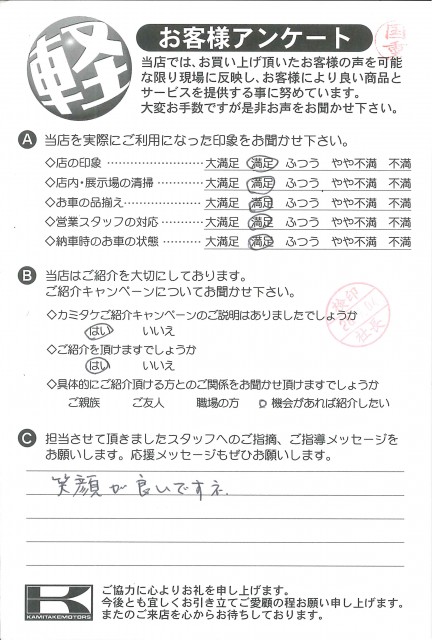 軽
お客様アンケート
当店では、お買い上げ頂いたお客様の声を可能
な限り現場に反映し、お客様により良い商品と
サービスを提供する事に努めています。
大変お手数ですが是非お声をお聞かせ下さい。
A 当店を実際にご利用になった印象をお聞かせ下さい。
◇店の印象 ……………… 大満足 満足 ふつう やや不満 不満
◇店内・展示場の清掃 ………… 大満足 満足 ふつう やや不満 不満
◇お車の品揃え ……………… 大満足 満足 ふつう やや不満 不満
◇営業スタッフの対応 ………… 大満足 満足 ふつう やや不満 不満
◇納車時のお車の状態 ………… 大満足 満足 ふつう やや不満 不満
B 当店はご紹介を大切にしております。
ご紹介キャンペーンについてお聞かせ下さい。
◇カミタケご紹介キャンペーンのご説明はありましたでしょうか
はい いいえ
◇ご紹介を頂けますでしょうか
はい いいえ
◇具体的にご紹介頂ける方とのご関係をお聞かせ頂けますでしょうか
ご親族 ご友人 職場の方 機会があれば紹介したい
社長
C 担当させて頂きましたスタッフへのご指摘、ご指導メッセージを
お願いします。応援メッセージもぜひお願いします。
笑顔が良いですネ.
K
KAMITAKEMOTORS
ご協力に心よりお礼を申し上げます。
今後とも宜しくお引き立てご愛顧の程お願い申し上げます。
またのご来店を心からお待ちしております。